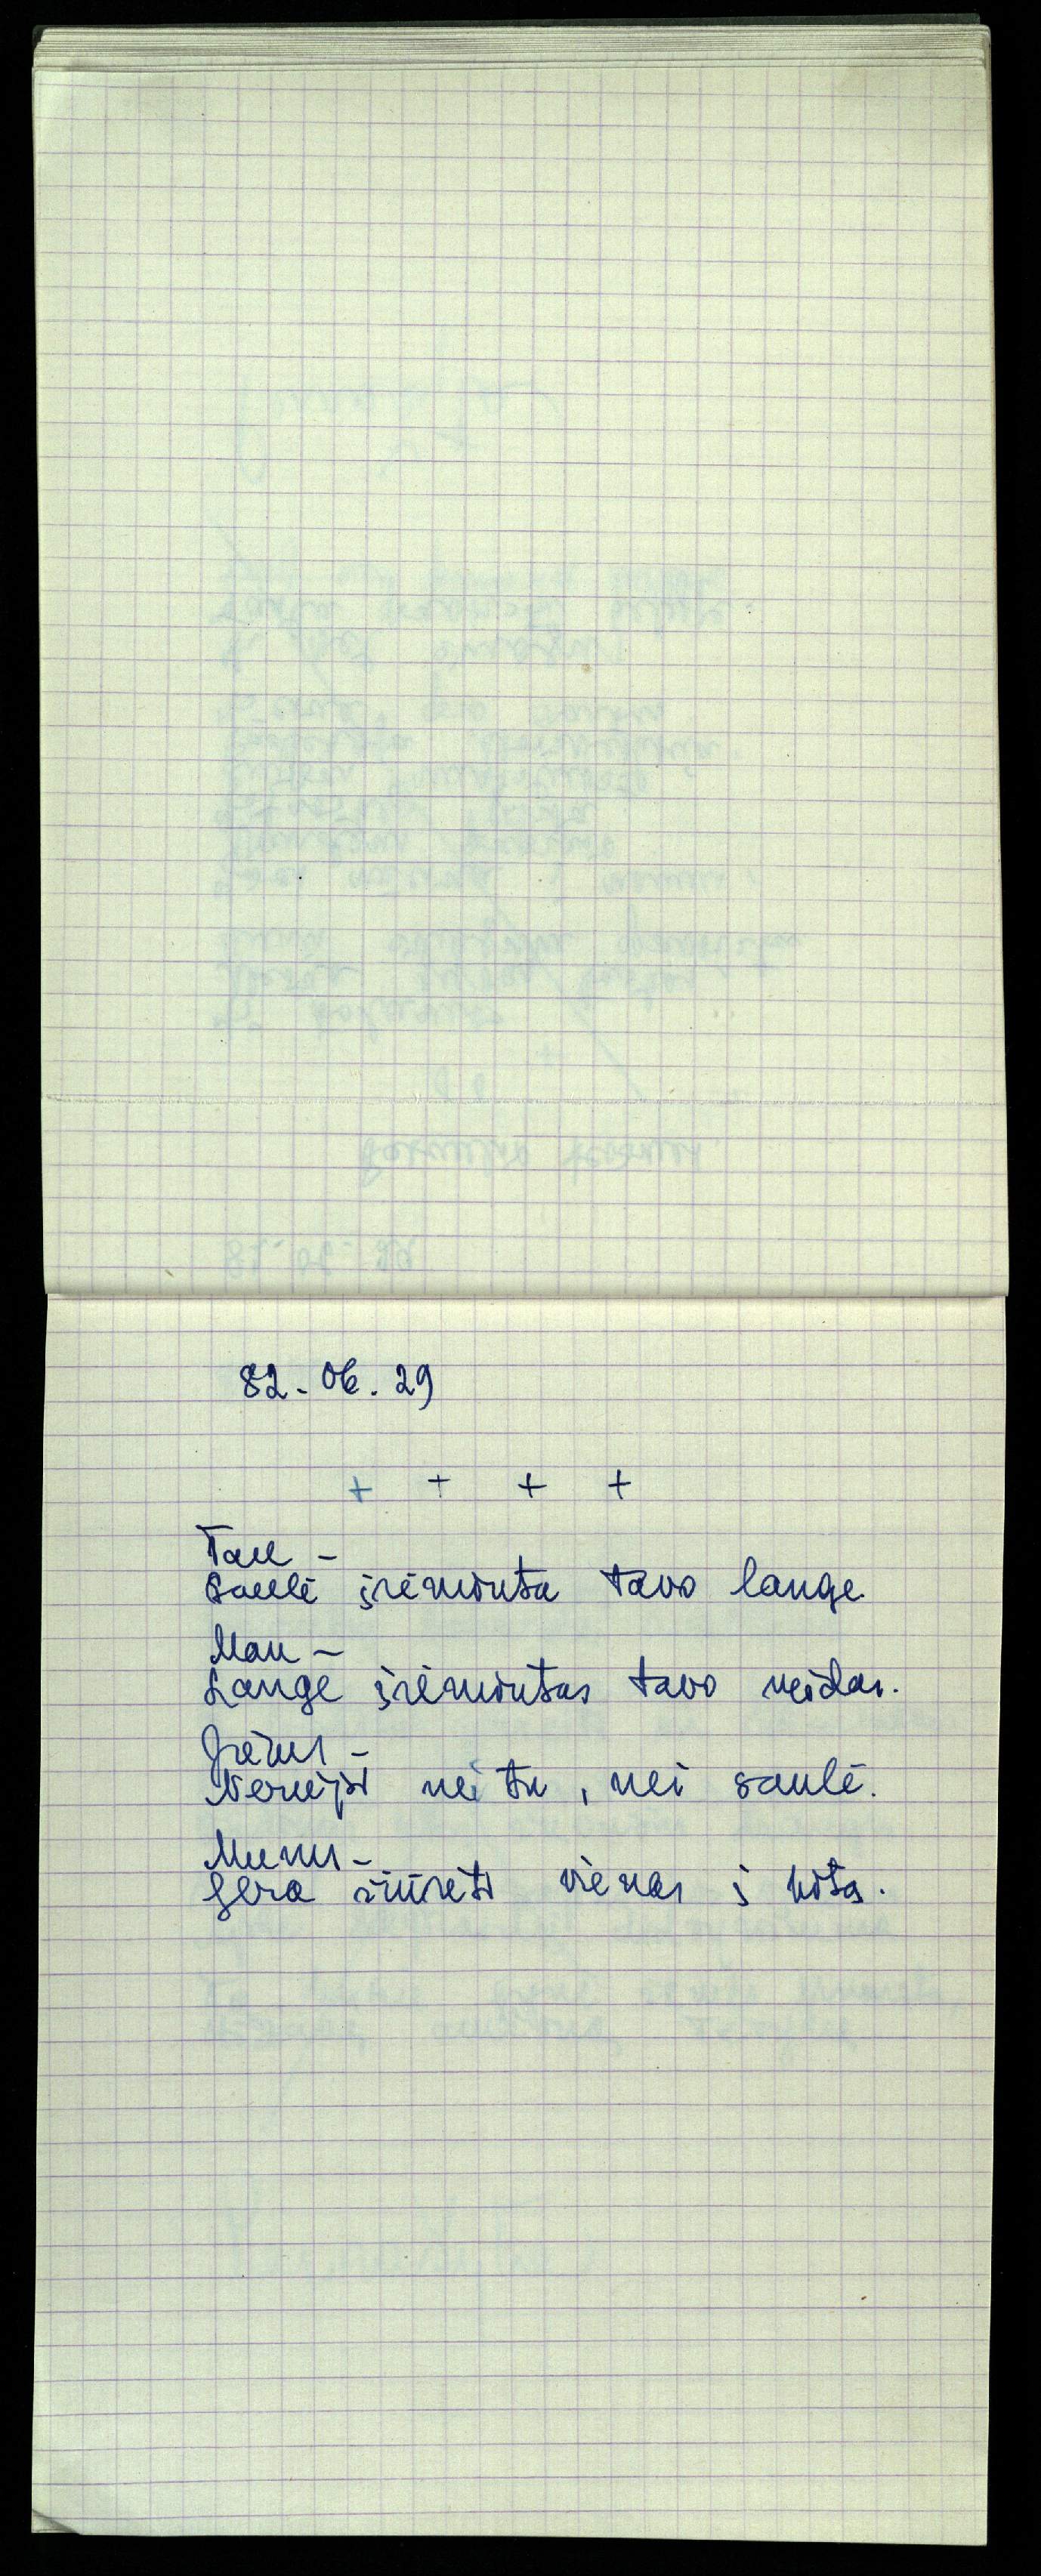 82. 06. 29
+ + + +
Tau –
Saulė įrėminta tavo lange.
Man –
Lange įrėmintas tavo veidas.
Jiems –
Nerūpi nei tu, nei saulė.
Mums –
Gera žiūrėti vienas į kitą.